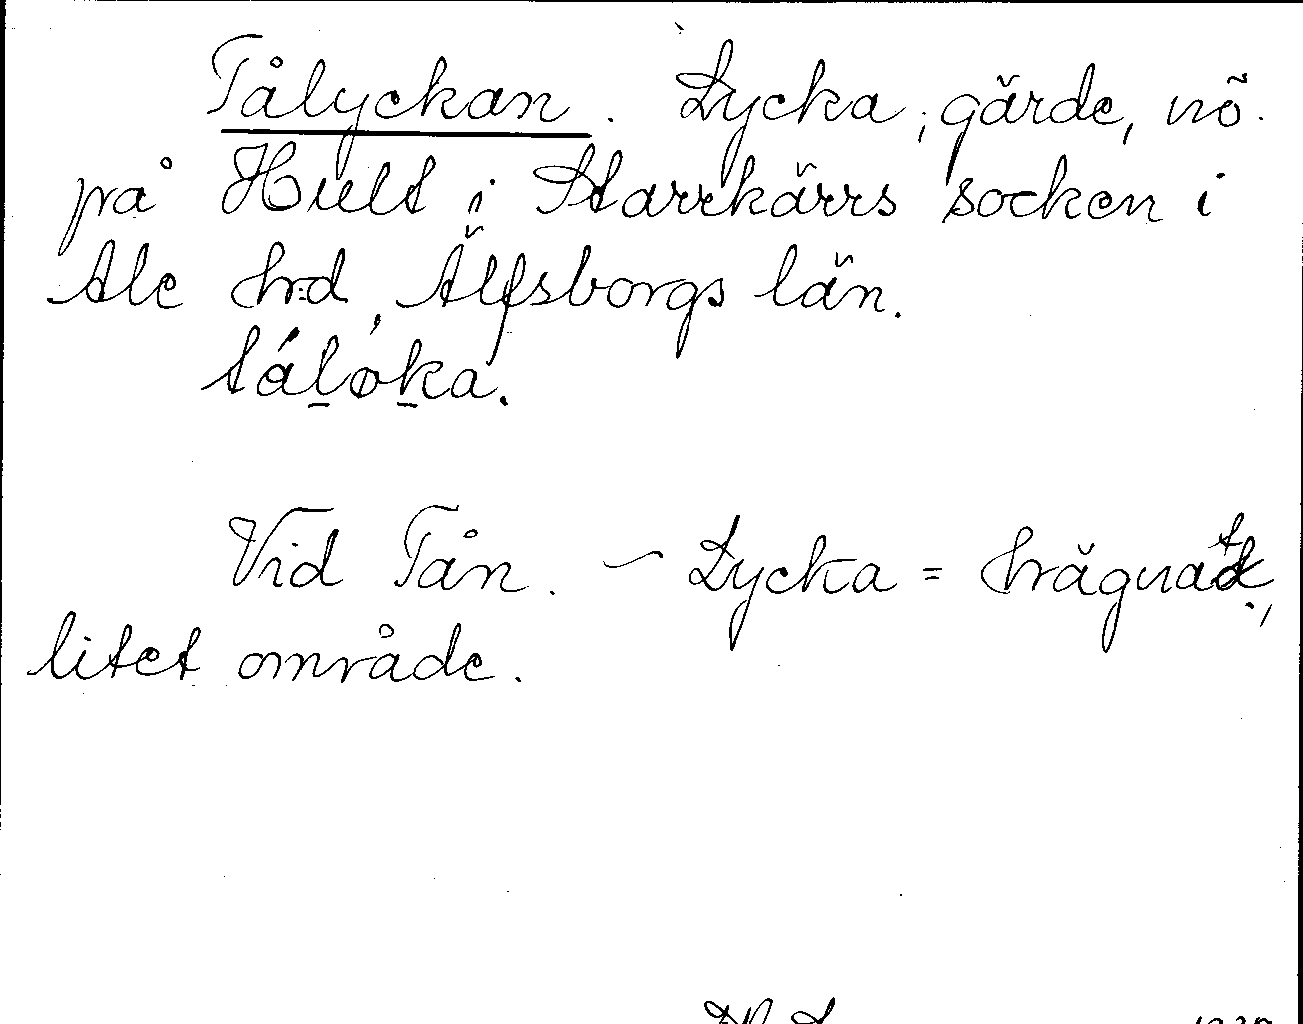 Tålyckan. Lycka, gärde, nö.
på Hult i Starrkärrs socken i
Ale hrd, Älfsborgs län.
táløka.
Vid Tån. – Lycka = hägnat,
litet område.